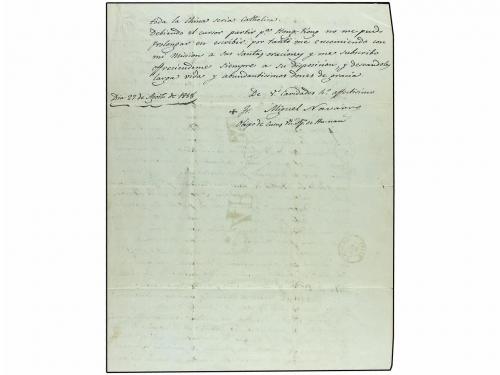 toda la China seria Catholica.
Debiendo el cursor partir pª Hong-Kong no me puedo
prolongar en escribir, por tanto me encomiendo con
mi Mision a sus santas oraciones y me subscribo
ofreciendome siempre a su disposicion, y deseandoles
larga vida y abundantisimos dones de gracia
Dia 27 de Agosto de 1848
De Vˢ Caridades hº affectisimo
+ Fr. Miguel Navarro
Obispo de